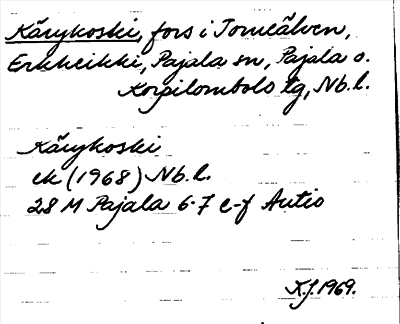 Kärykoski, fors i Torneälven,
Erkheikki, Pajala sn, Pajala o.
Korpilombolo tg, Nb.l.
Kärykoski
ek (1968) Nb.l.
28 M Pajala 6-7 e-f Autio
K.J. 1969.